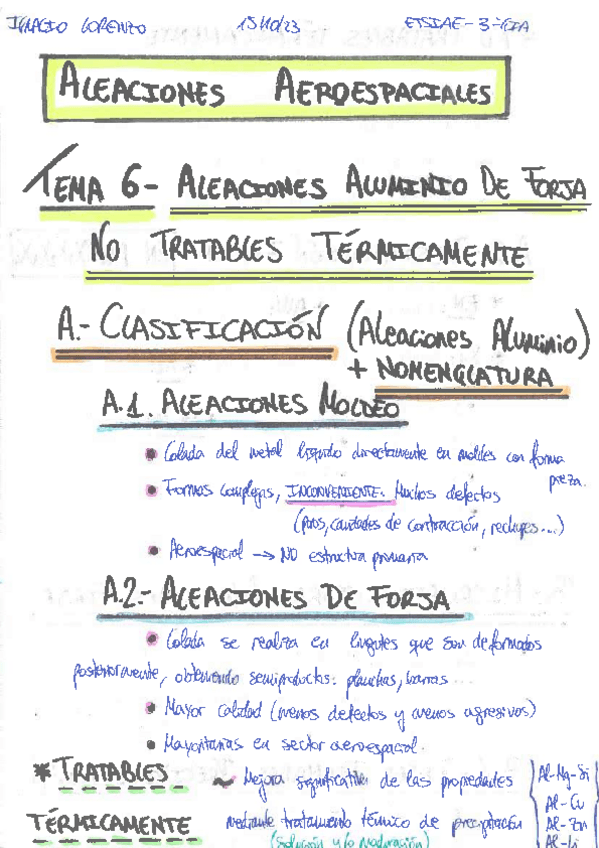 IGNACIO LORENZO 15/10/23 ETSIAE-3-CTA
ALEACIONES AEROESPACIALES
TEMA 6- ALEACIONES ALUMINIO DE FORJA
NO TRATABLES TÉRMICAMENTE
A.- CLASIFICACIÓN (ALEACIONES ALUMINIO)
+ NOMENCLATURA
A.1. ALEACIONES MOLDEO
• Colada del metal líquido directamente en moldes con forma
pieza.
• Formas complejas, INCONVENIENTE. Muchos defectos
(poros, cavidades de contracción, rechupes...)
• Aeroespacial → NO estructura primaria
A.2.- ALEACIONES DE FORJA
• Colada se realiza en lingotes que son deformados
posteriormente, obteniendo semiproductos: planchas, barras
• Mayor calidad (menos defectos y menos agresivos)
• Mayoritarias en sector aeroespacial.
* TRATABLES ~ Mejora significativa de las propiedades Al-Mg-Si
Al-Cu
TÉRMICAMENTE mediante tratamiento térmico de precipitación Al-Zn
(solución y/o maduración) Al-Li